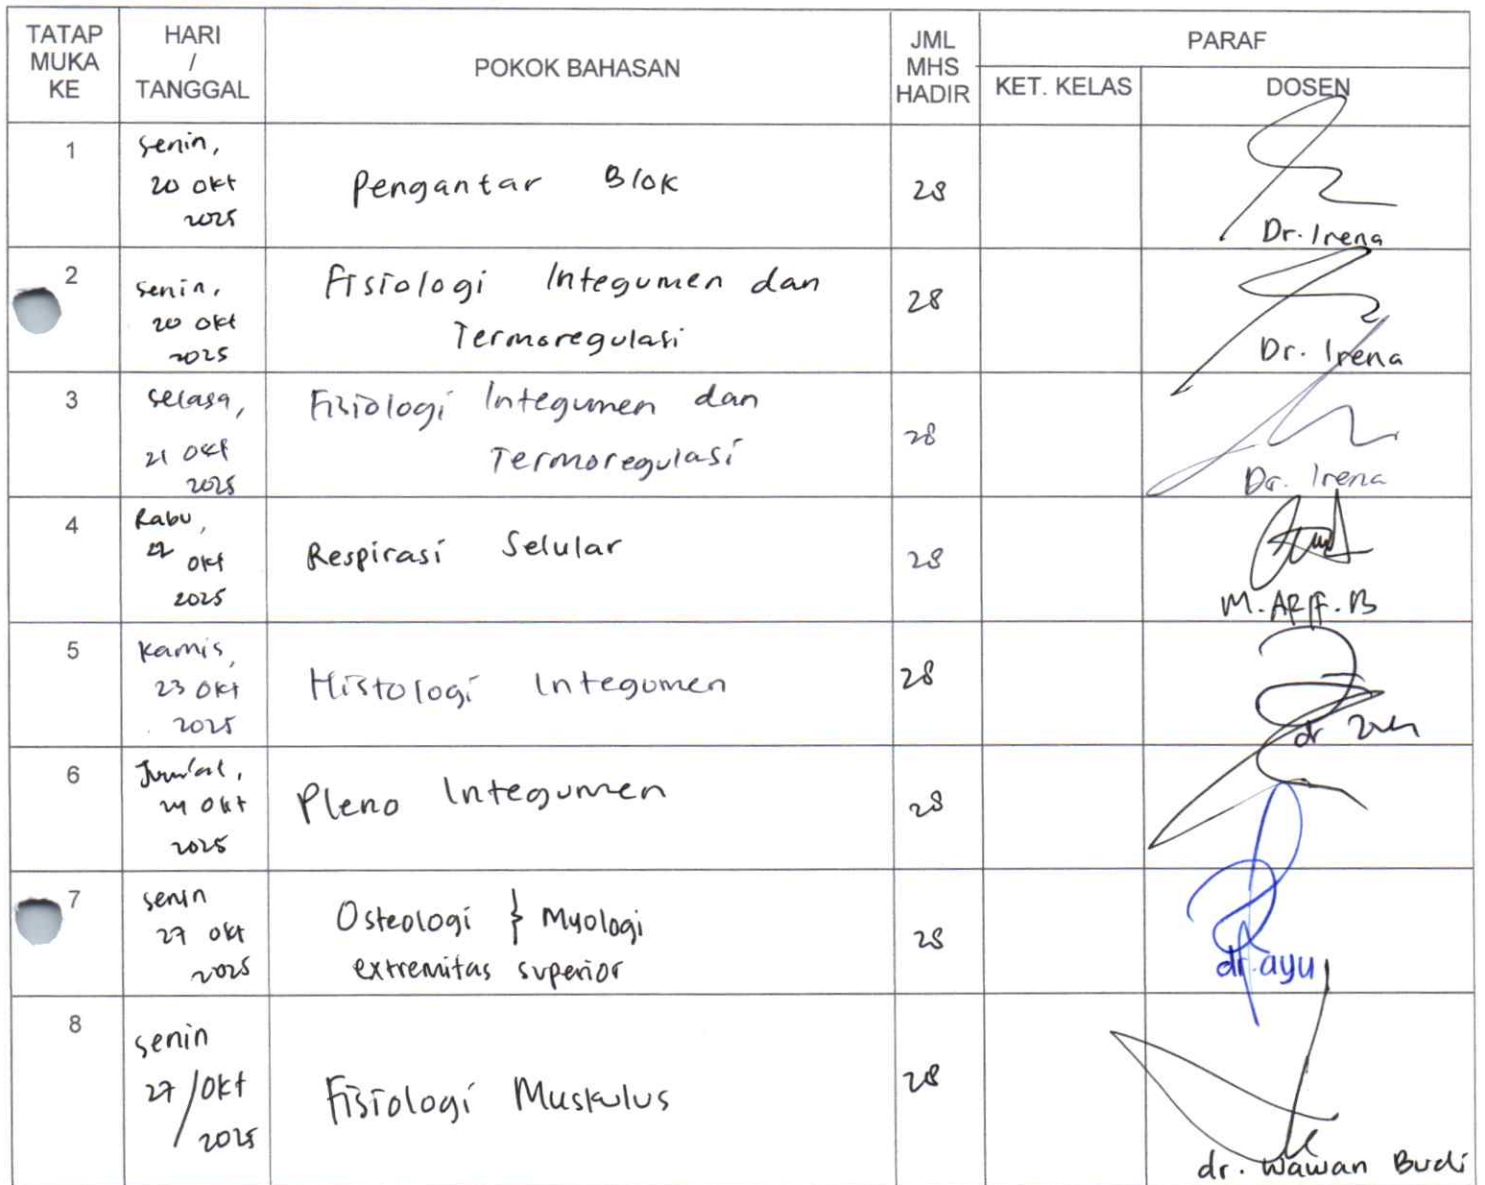 TATAP MUKA KE
HARI / TANGGAL
POKOK BAHASAN
JML MHS HADIR
PARAF
KET. KELAS
DOSEN
1
Senin,
20 Okt
2025
Pengantar Blok
28
Dr. Irena
2
Senin,
20 Okt
2025
Fisiologi Integumen dan
Termoregulasi
28
Dr. Irena
3
Selasa,
21 Okt
2025
Fisiologi Integumen dan
Termoregulasi
28
Dr. Irena
4
Rabu,
22
Okt
2025
Respirasi Selular
28
M. ARIF. B
5
Kamis,
23 Okt
2025
Histologi Integumen
28
dr
6
Jum'at,
24 Okt
2025
Pleno Integumen
28
7
Senin
27 Okt
2025
Osteologi } Myologi
extremitas superior
28
dr. ayu
8
Senin
27/Okt
2025
Fisiologi Muskulus
28
dr. Wawan Budi